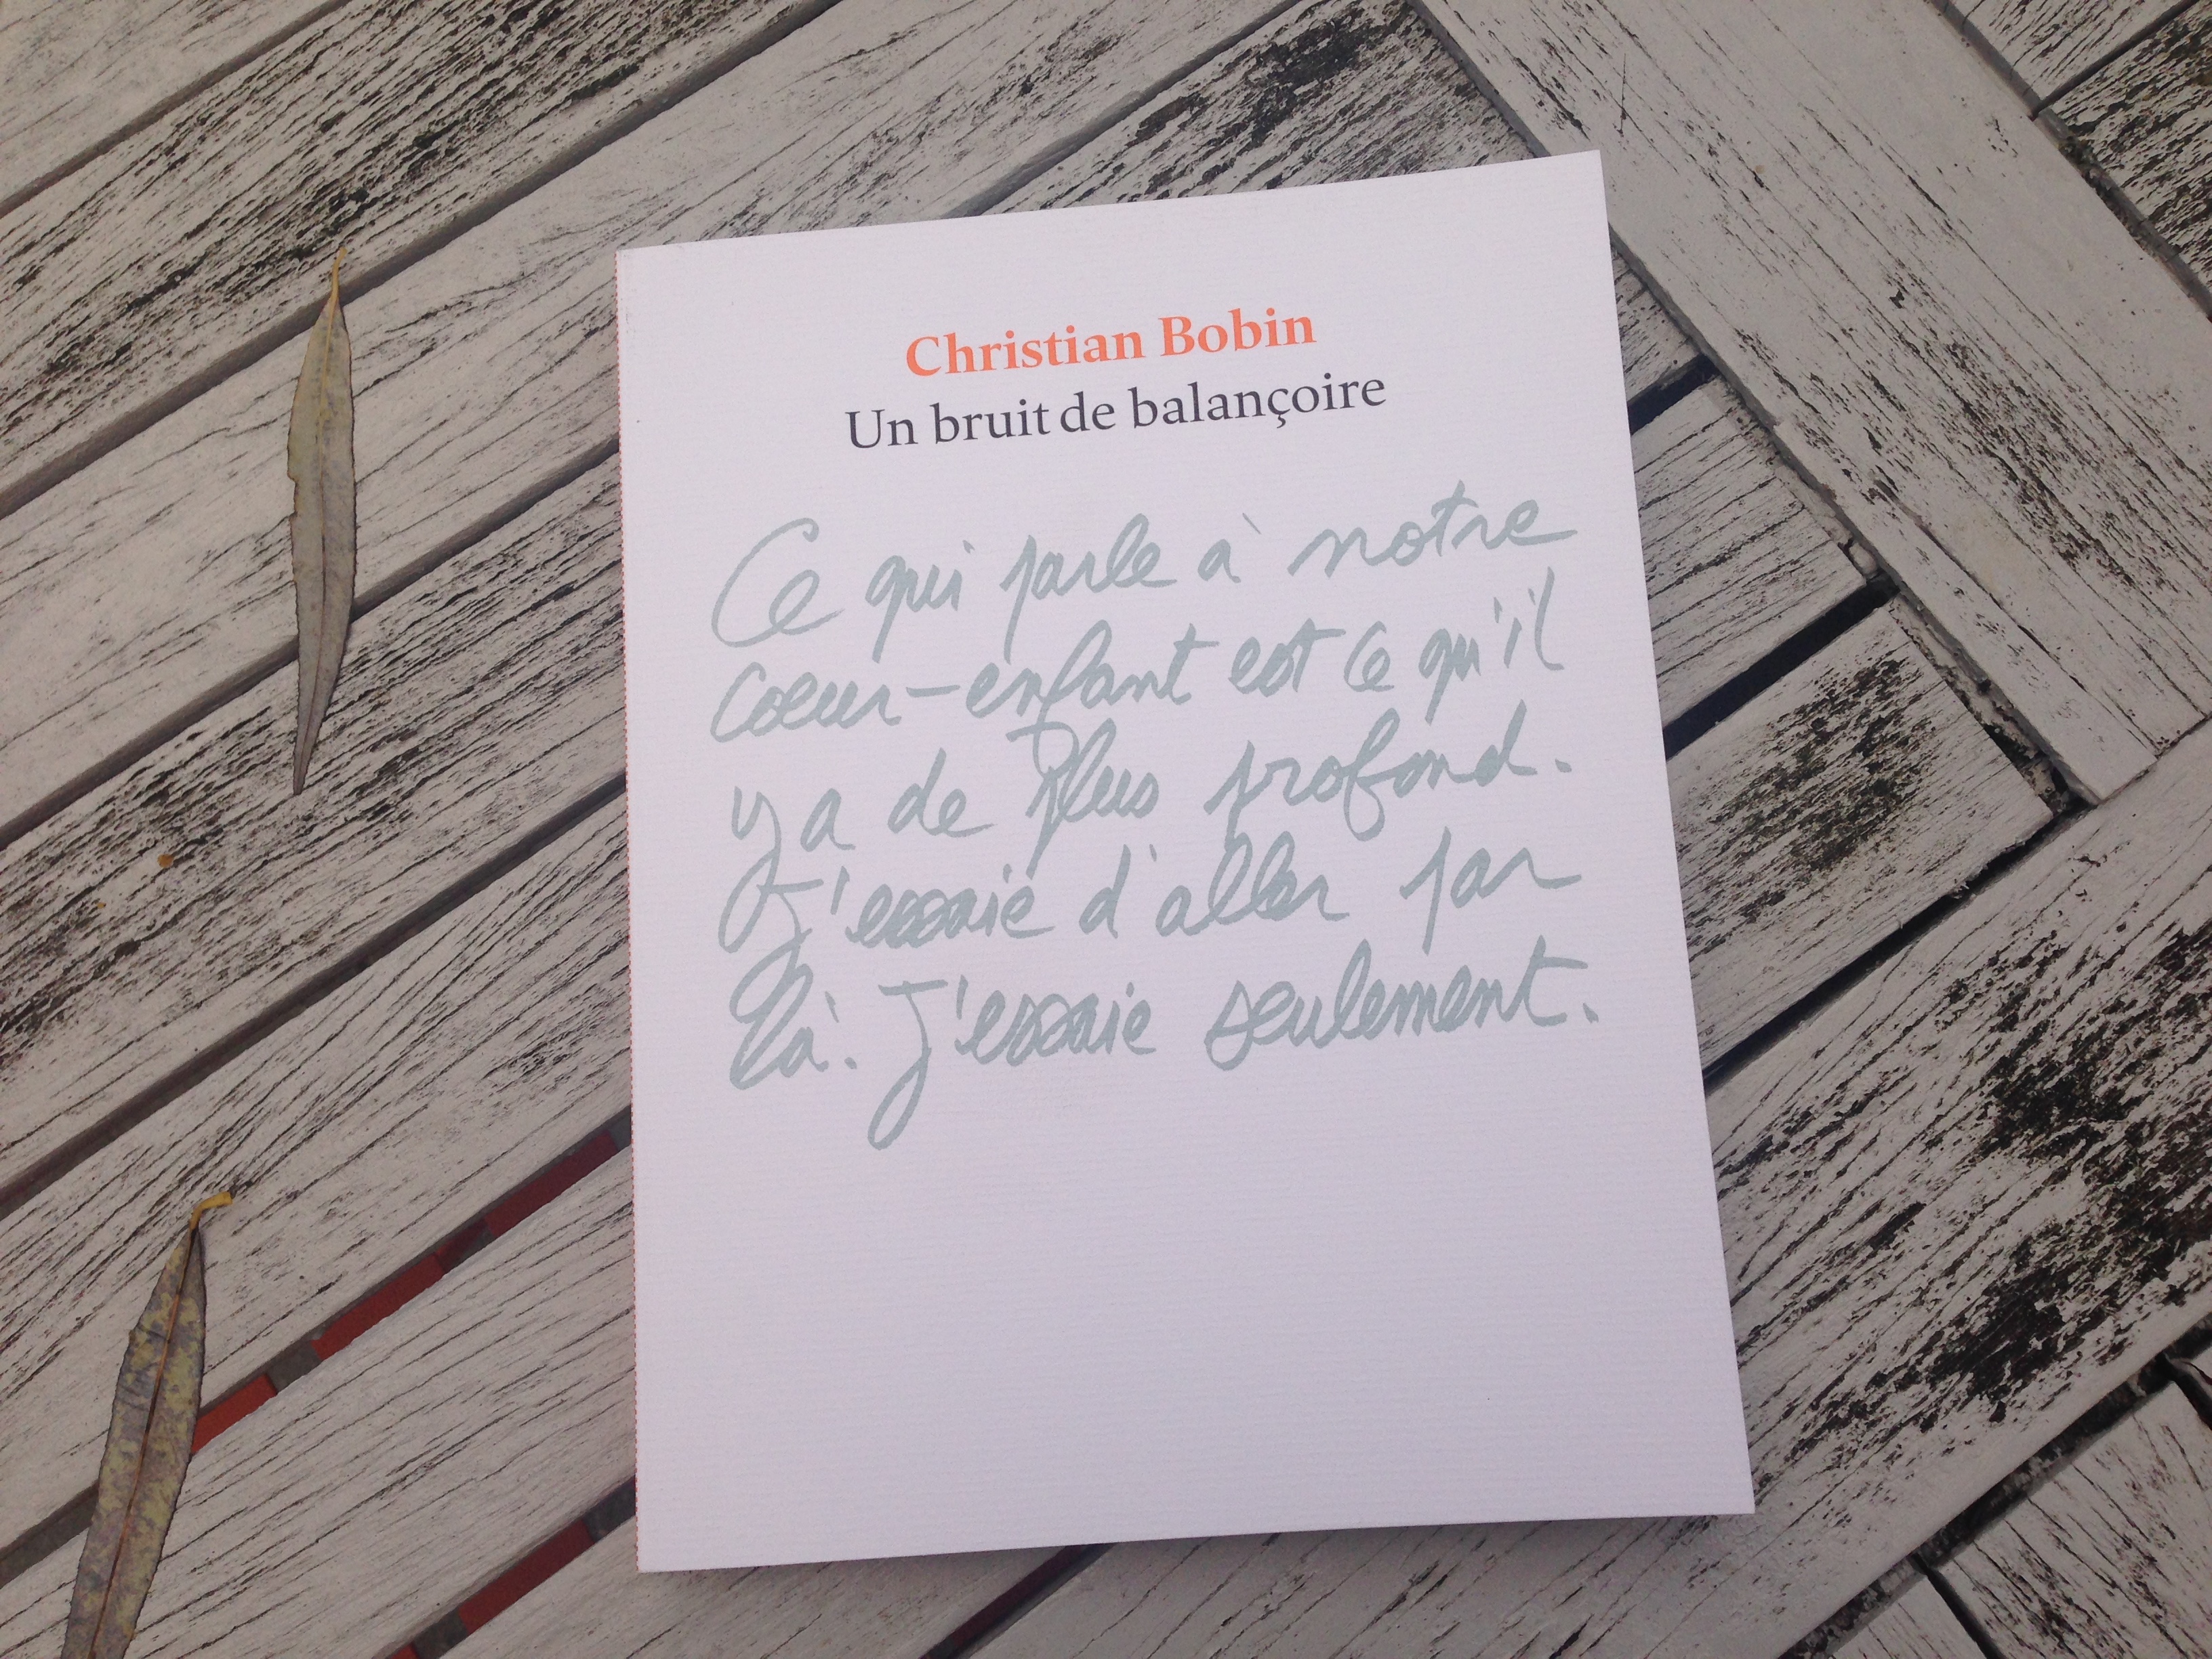 Christian Bobin
Un bruit de balançoire
Ce qui parle à notre
cœur-enfant est ce qu'il
y a de plus profond.
J'essaie d'aller par
là. J'essaie seulement.